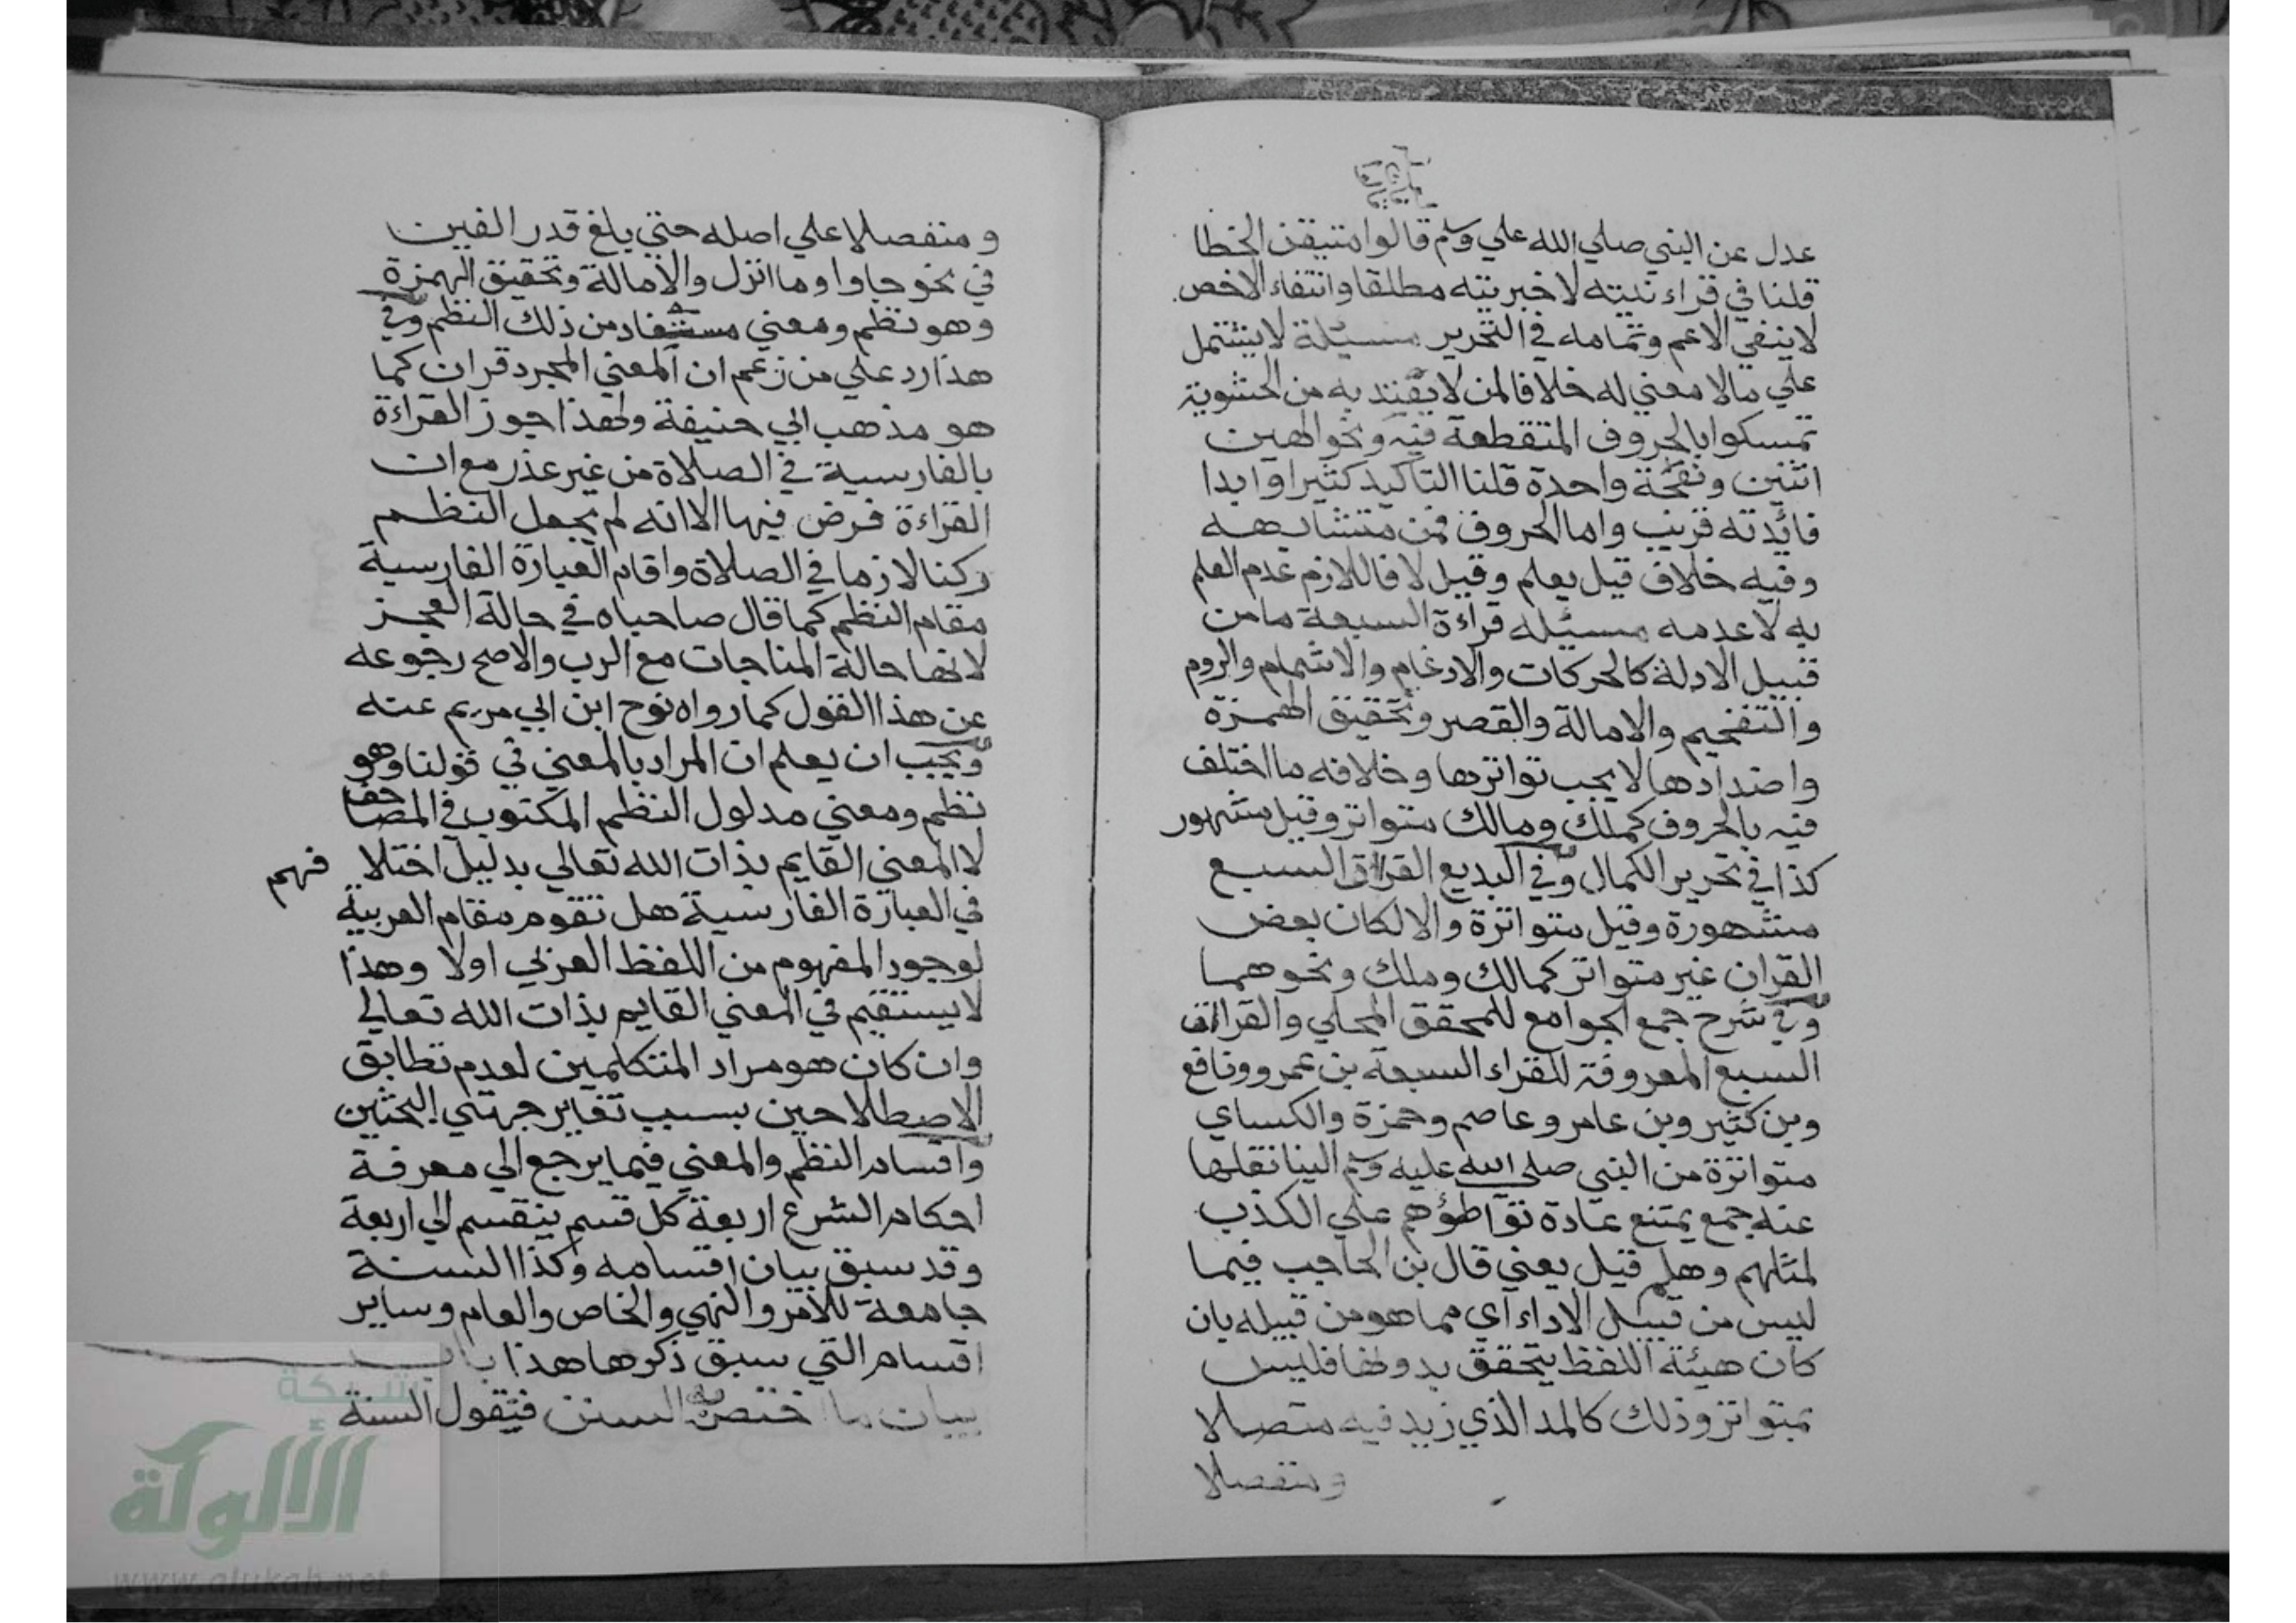 عدل عن النبي صلي الله علي وسلم قالوا متيقن الخطا
قلنا في قراءنيته لا خبريته مطلقا وانتفاء الاخص
لا ينفي الاعم وتمامه في التحرير مسئلة لا يشتمل
علي مالا معني له خلافا لمن لا يعتد به من الحشوية
تمسكوا بالحروف المتقطعة فيه ونحو الهين
اثنين ونفخة واحدة قلنا التاكيد كثير اوابدا
فائدته قريب واما الحروف فمن متشابهه
وفيه خلاف قيل يعلم وقيل لا فاللازم عدم العلم
به لا عدمه مسئله قراءة السبعة مامن
قبيل الادلة كالحركات والادغام والاشمام والروم
والتفخيم والامالة والقصر وتحقيق الهمزة
واضدادها لا يجب تواترها وخلافه ما اختلف
فيه بالحروف كملك ومالك متواتر وقيل مشهور
كذا في تحرير الكمال وفي البديع القراات السبع
مشهورة وقيل متواترة والا لكان بعض
القران غير متواتر كمالك وملك ونحوهما
وفي شرح جمع الجوامع للمحقق المحلي والقراات
السبع المعروفة للقراء السبعة بن عمرو ونافع
وبن كثير وبن عامر وعاصم وحمزة والكساي
متواترة من النبي صلي الله عليه وسلم الينا نقلها
عنه جمع يمتنع عادة تواطؤهم علي الكذب
لمثلهم وهلم قيل يعني قال بن الحاجب فيما
ليس من قبيل الاداء اي مما هو من قبيله بان
كان هيئة اللفظ يتحقق بدونها فليس
بمتواتر وذلك كالمد الذي زيد فيه متصلا
ومنفصلا
ومنفصلا علي اصله حتي بلغ قدر الفين
في نحو جاوا وما انزل والامالة وتحقيق الهمزة
وهو نظم ومعني مستفاد من ذلك النظم وفي
هذا رد علي من زعم ان المعني المجرد قران كما
هو مذهب ابي حنيفة ولهذا جوز القراءة
بالفارسية في الصلاة من غير عذر مع ان
القراءة فرض فيها الا انه لم يجعل النظم
ركنا لازما في الصلاة واقام العبارة الفارسية
مقام النظم كما قال صاحباه في حالة العجز
لانها حالة المناجات مع الرب والاصح رجوعه
عن هذا القول كما رواه نوح ابن ابي مريم عنه
ويجب ان يعلم ان المراد بالمعني في قولنا وهو
نظم ومعني مدلول النظم المكتوب في المصاحف
لا المعني القايم بذات الله تعالي بدليل اختلا فهم
في العبارة الفارسية هل تقوم مقام العربية
لوجود المفهوم من اللفظ العربي اولا وهذا
لا يستقيم في المعني القايم بذات الله تعالي
وان كان هو مراد المتكلمين لعدم تطابق
الاصطلاحين بسبب تغاير جهتي البحثين
واقسام النظم والمعني فيما يرجع الي معرفة
احكام الشرع اربعة كل قسم ينقسم الي اربعة
وقد سبق بيان اقسامه وكذا السنة
جامعة للامر والنهي والخاص والعام وساير
اقسام التي سبق ذكرها هذا باب
بيان ما اختص به السنن فنقول السنة
شبكة
الألوكة
www.alukah.net